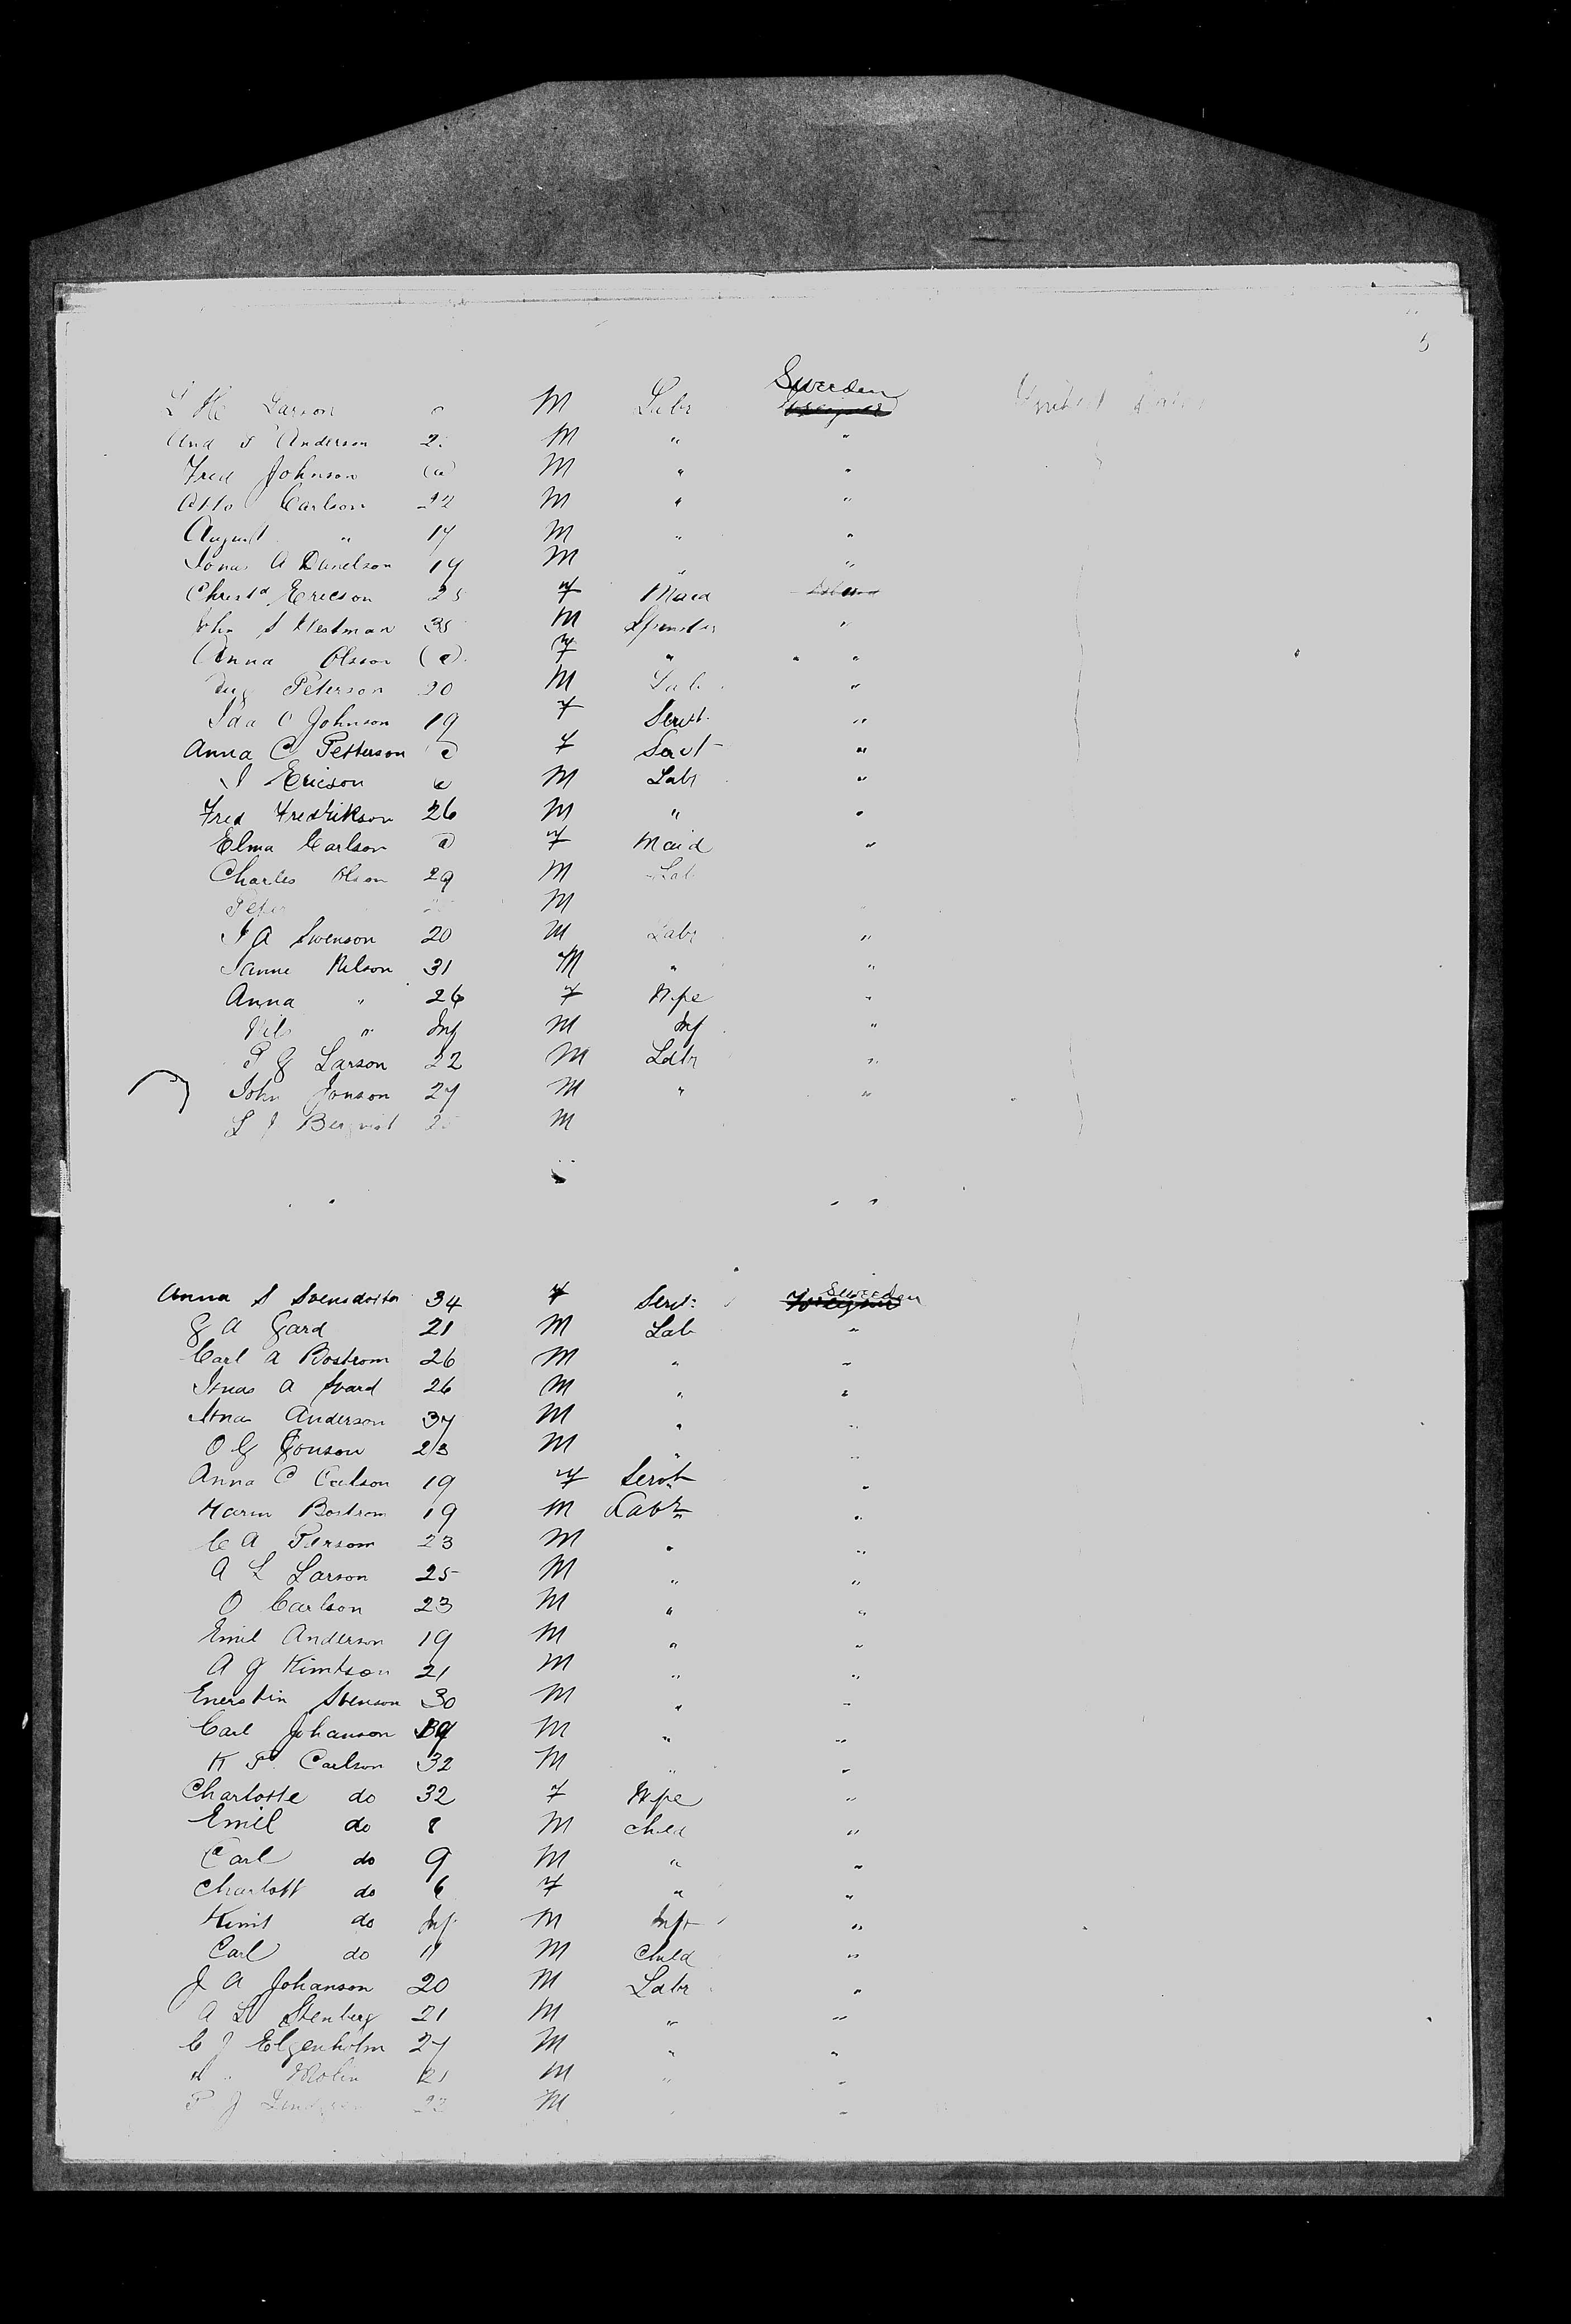 5
L H Larson M Labr Sweden United
And P Anderson M " "
Fred Johnson (a) M " "
Otto Carlson 22 M " "
August " 17 M " "
Jonas A Danelson 19 M " "
Christa Ericson 25 F Maid
John S Westman 35 M Spinster "
Anna Olsson (a) F " "
Aug Peterson 20 M Lab "
Ida C Johnson 19 F Servt "
Anna C Petterson a F Servt "
J Ericson a M Labr "
Fred Fredrikson 26 M " "
Elma Carlson a F Maid "
Charles Olson 29 M Lab
Peter M
J A Swenson 20 M Labr "
Janne Nelson 31 M " "
Anna " 26 F Wife "
Nils " Inf M Inf "
P G Larson 22 M Labr "
John Jonson 27 M " "
L J Berqvist M
Anna S Svensdotter 34 F Servt: Sweden
G A Gard 21 M Lab "
Carl A Bostrom 26 M " "
Jonas A Svard 26 M " "
Jonas Anderson 37 M " "
O G Jonson 23 M " "
Anna C Carlson 19 F Servt "
Bostrom 19 M Labr "
C A Person 23 M " "
A L Larson 25 M " "
O Carlson 23 M " "
Emil Anderson 19 M " "
A G 21 M " "
Svenson 30 M " "
Carl Johanson 39 M " "
K P Carlson 32 M " "
Charlotte do 32 F Wife "
Emil do 8 M Child "
Carl do 9 M " "
Charlott do 6 F " "
do Inf M Inft "
Carl do 11 M Child "
J A Johanson 20 M Labr "
A L Stenberg 21 M " "
C J Elgenholm 27 M " "
Molin 21 M " "
P J M "